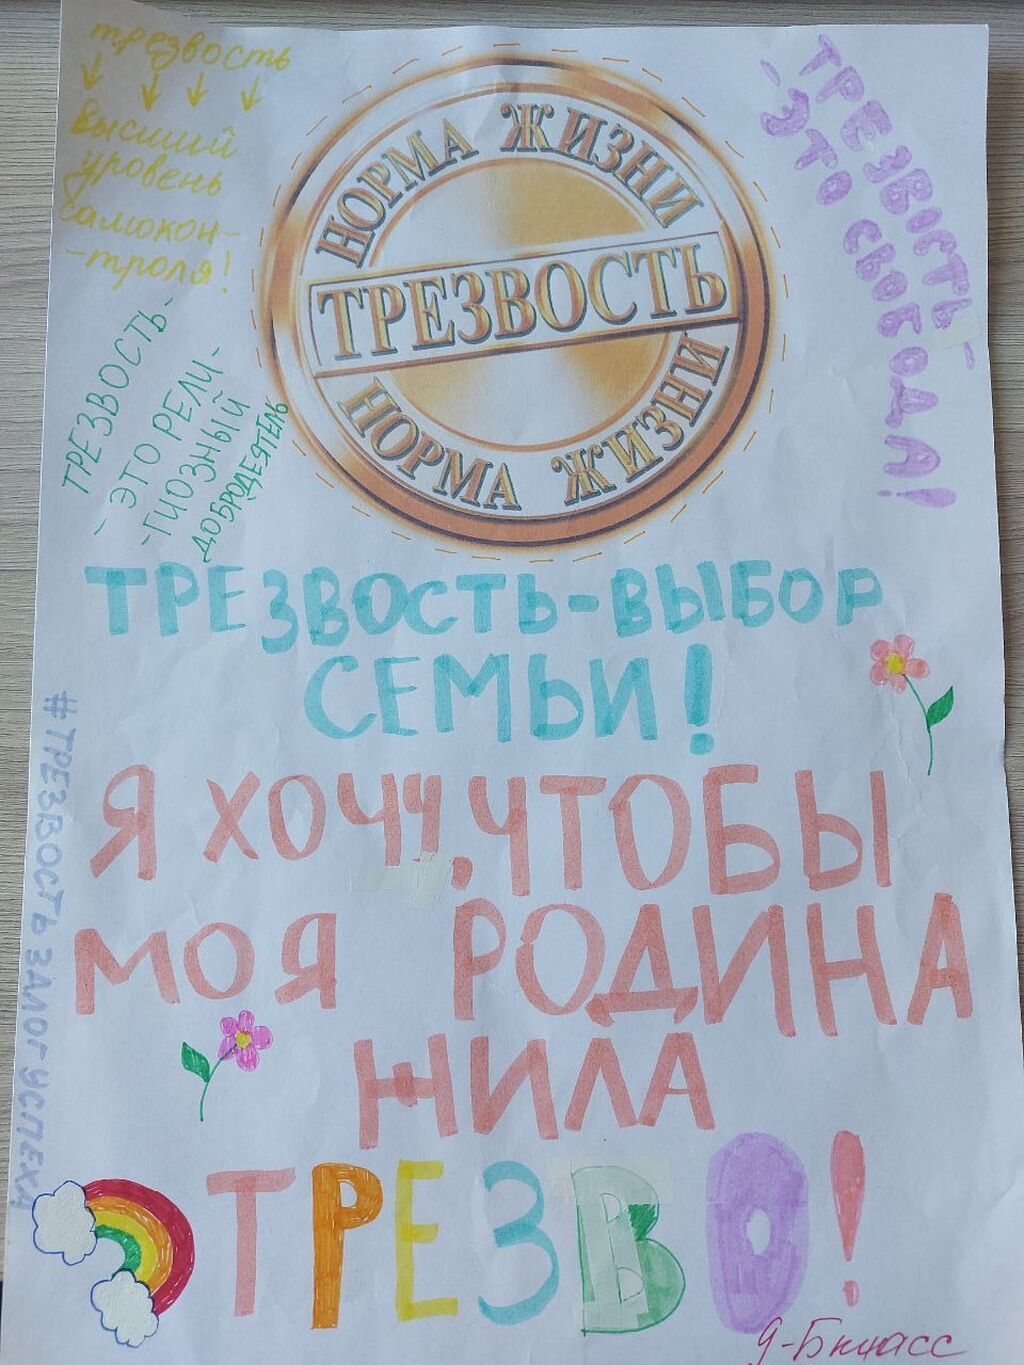 трезвость
высший
уровень
самокон-
-троля!
НОРМА ЖИЗНИ
ТРЕЗВОСТЬ
НОРМА ЖИЗНИ
ТРЕЗВОСТЬ-
-ЭТО СВОБОДА!
ТРЕЗВОСТЬ-
- ЭТО РЕЛИ-
-ГИОЗНЫЙ
ДОБРОДЕЯТЕЛЬ
ТРЕЗВОСТЬ-ВЫБОР
СЕМЬИ!
#ТРЕЗВОСТЬ ЗАЛОГ УСПЕХА
Я ХОЧУ, ЧТОБЫ
МОЯ РОДИНА
ЖИЛА
ТРЕЗВО!